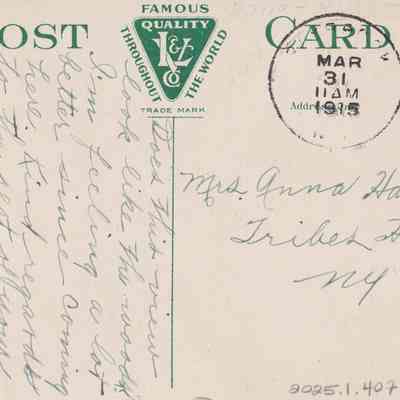 OST CARD
FAMOUS
QUALITY
THROUGHOUT THE WORLD
L & Co
TRADE MARK
MAR
31
11 AM
1915
Address
Does this view
look like the woods
I'm feeling a lot
better since coming
here. Kind regards
to the rest of your
Mrs. Anna Ha
Tribes H
NY
2025.1.407